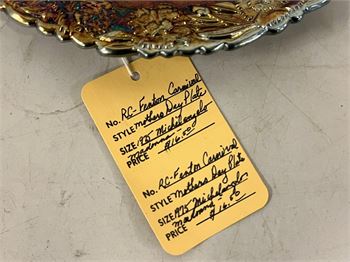 No. RC-Fenton Carnival
STYLE Mothers Day Plate
SIZE 1975 Michelangelo
madonna
PRICE $16.00
No. RC-Fenton Carnival
STYLE Mothers Day Plate
SIZE 1975 Michelangelo
madonna
PRICE $16.00